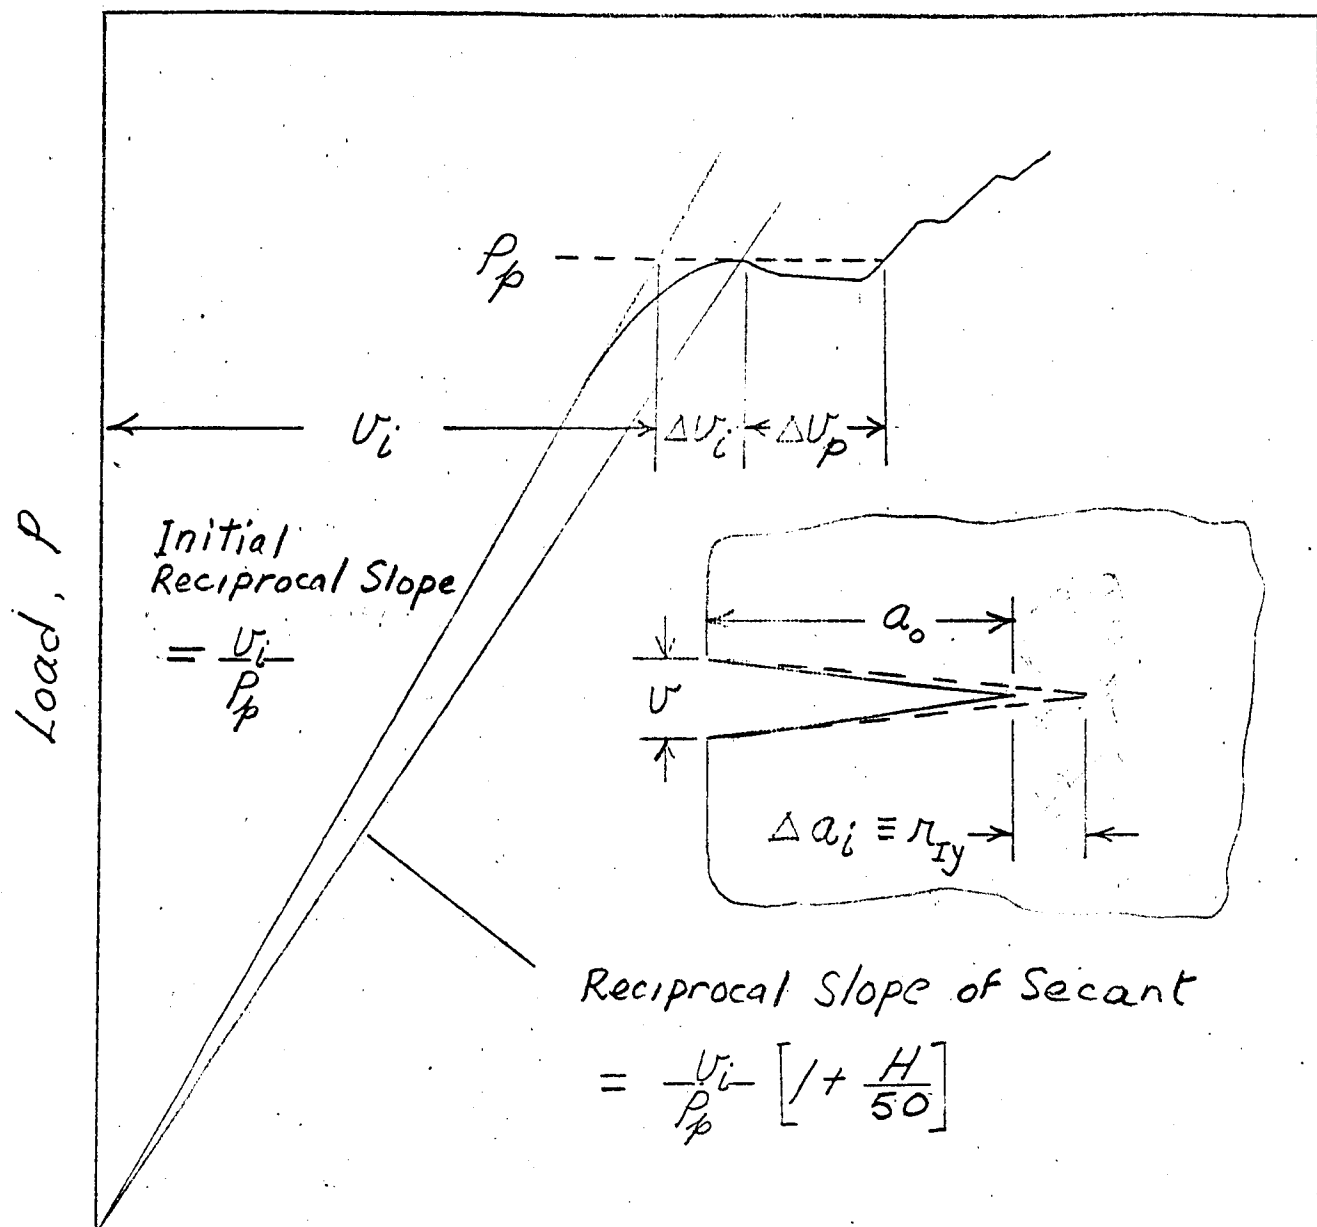 P_p
v_i
Δv_i
Δv_p
Load, P
Initial
Reciprocal Slope
= v_i / P_p
a_o
v
Δa_i ≡ r_Iy
Reciprocal Slope of Secant
= v_i / P_p [1 + H / 50]